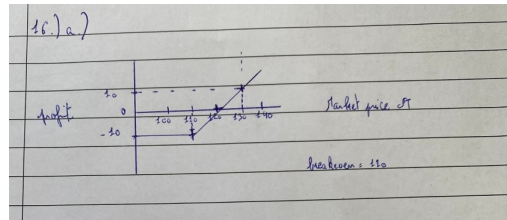 16.) a.)
10
0
profit
100 110 120 130 140
Market price
-10
breakeven = 120